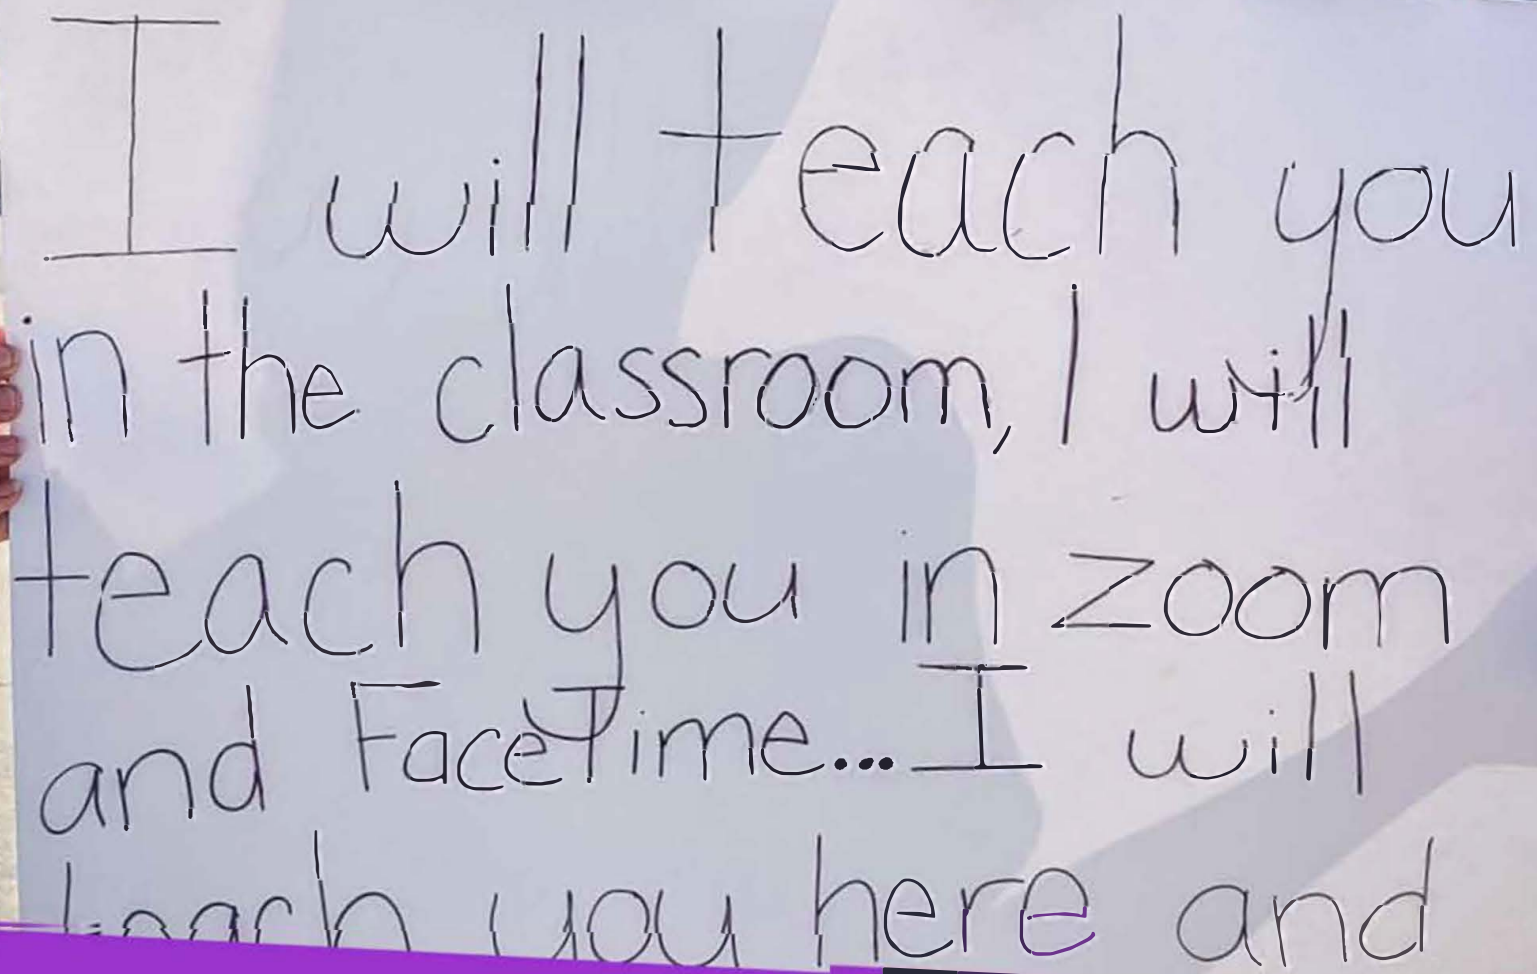 I will teach you
in the classroom, I will
teach you in zoom
and FaceTime... I will
teach you here and